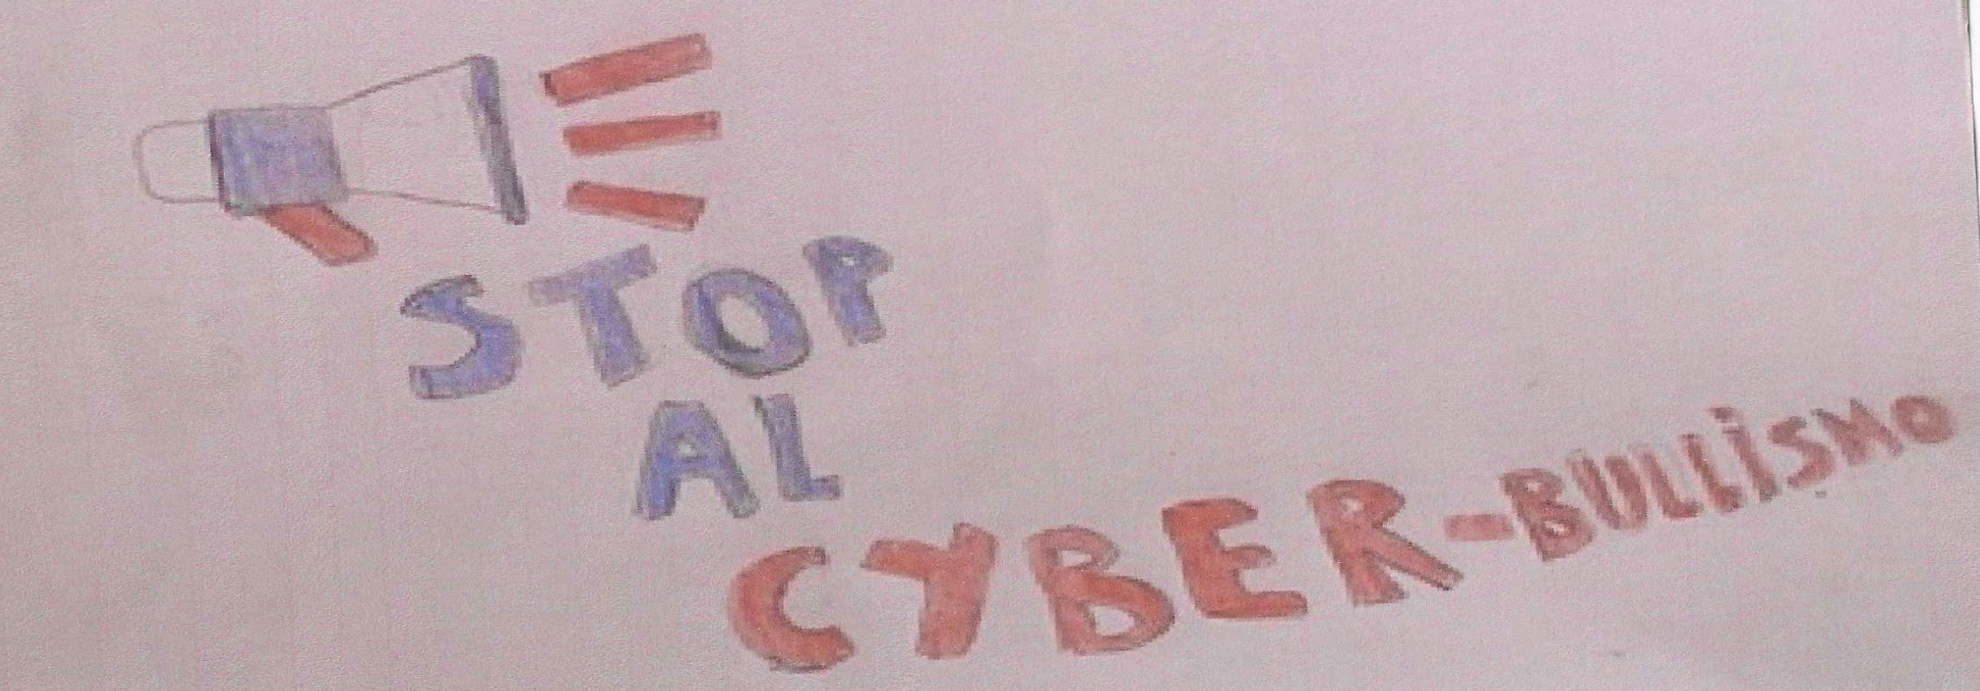 STOP
AL
CYBER-BULLISMO